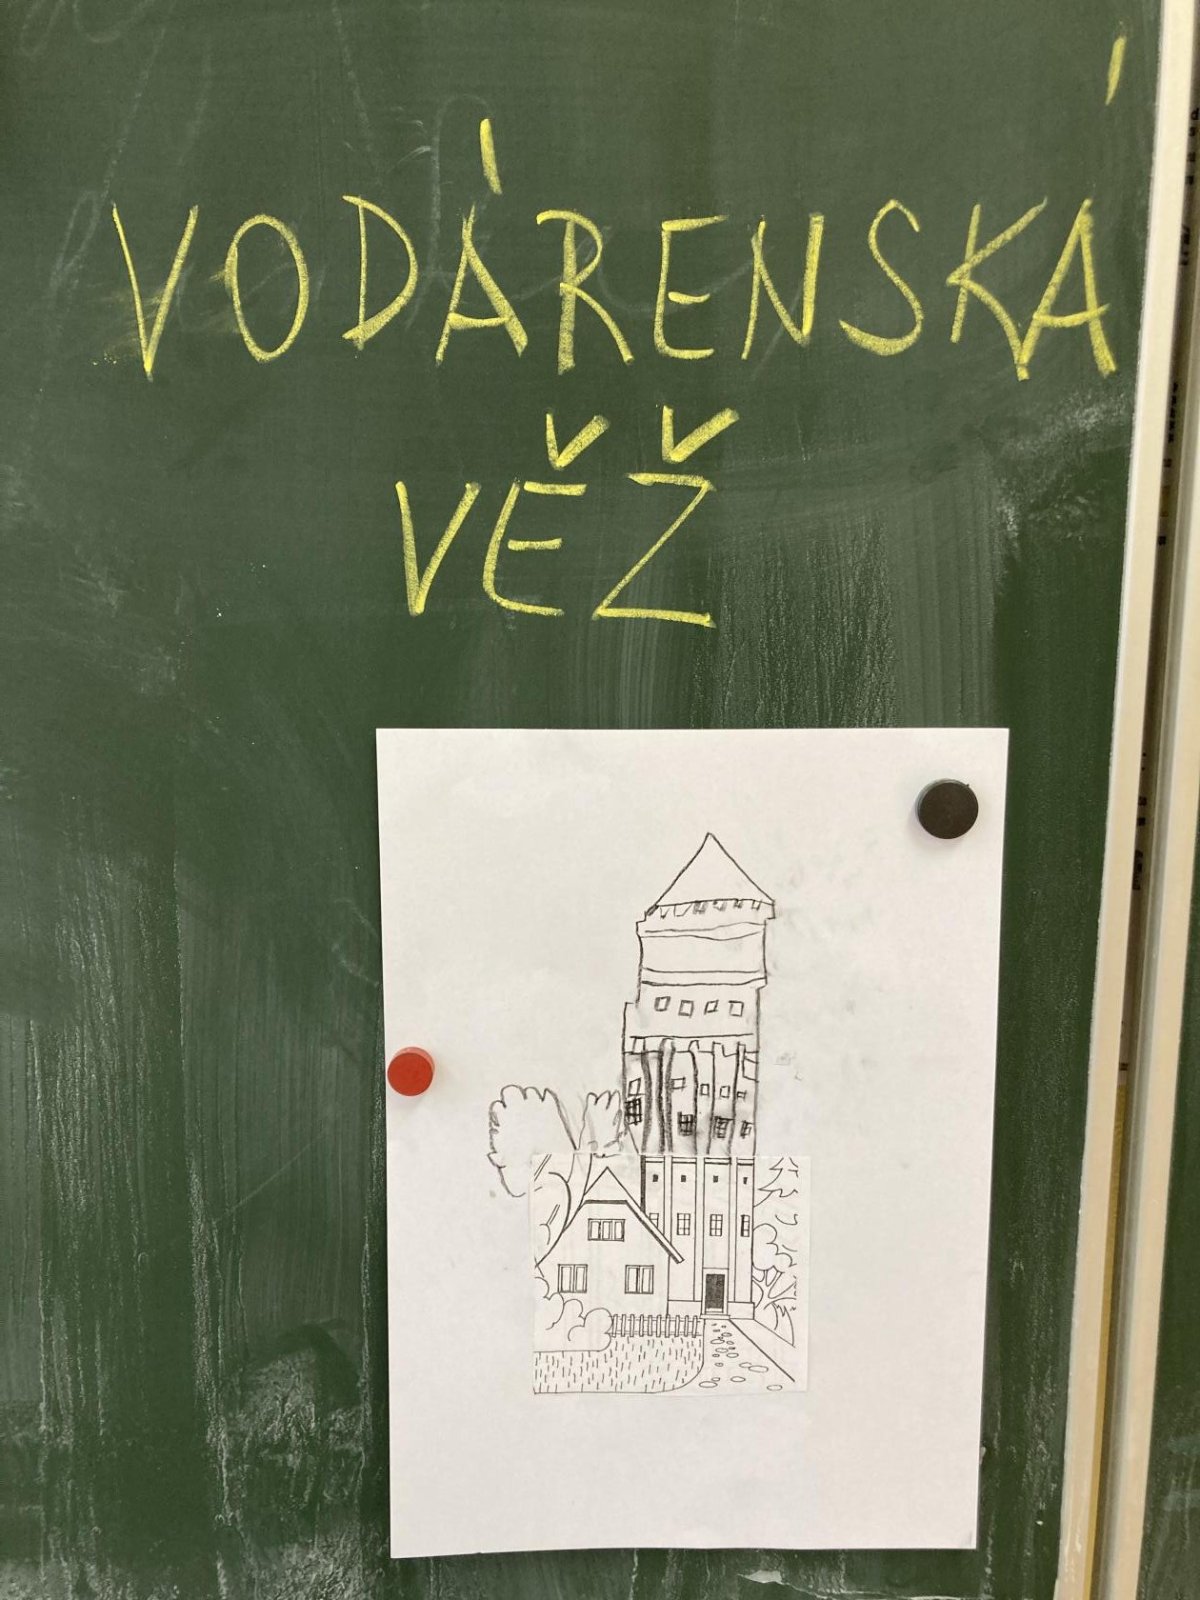 VODÁRENSKÁ
VĚŽ